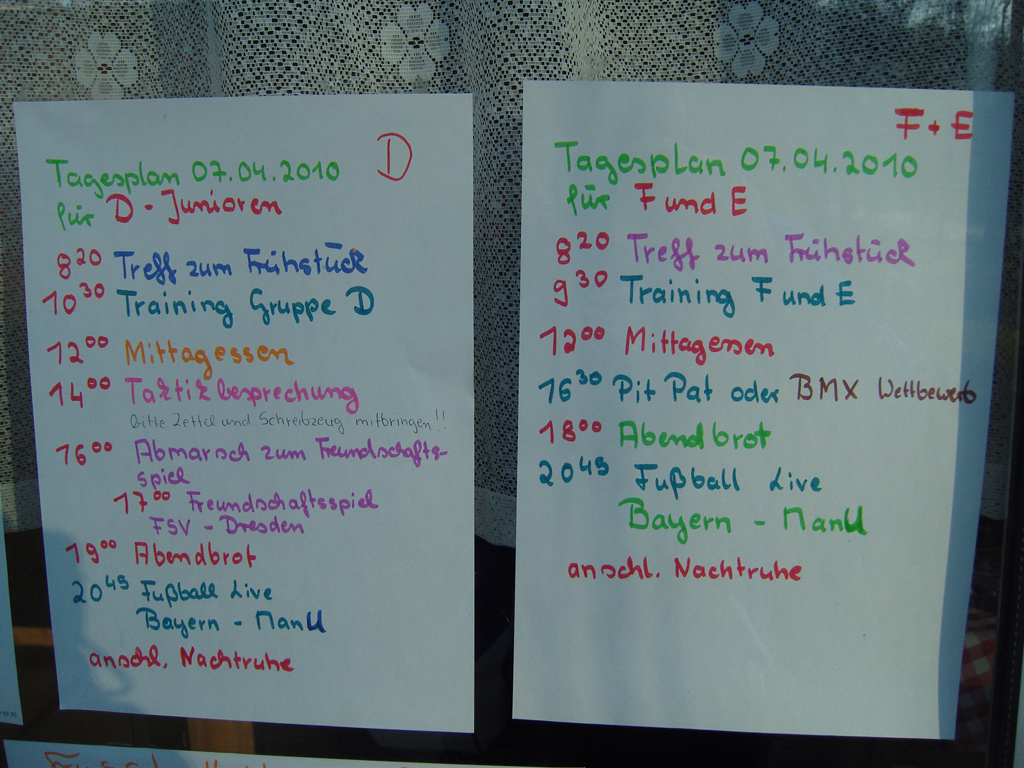 D
Tagesplan 07.04.2010
für D - Junioren
8 20 Treff zum Frühstück
10 30 Training Gruppe D
12 00 Mittagessen
14 00 Taktik besprechung
bitte Zettel und Schreibzeug mitbringen!!
16 00 Abmarsch zum Freundschafts-
spiel
17 00 Freundschaftsspiel
FSV - Dresden
19 00 Abendbrot
20 45 Fußball Live
Bayern - ManU
anschl. Nachtruhe
F + E
Tagesplan 07.04.2010
für F und E
8 20 Treff zum Frühstück
9 30 Training F und E
12 00 Mittagessen
16 30 Pit Pat oder BMX Wettbewerb
18 00 Abendbrot
20 45 Fußball Live
Bayern - ManU
anschl. Nachtruhe